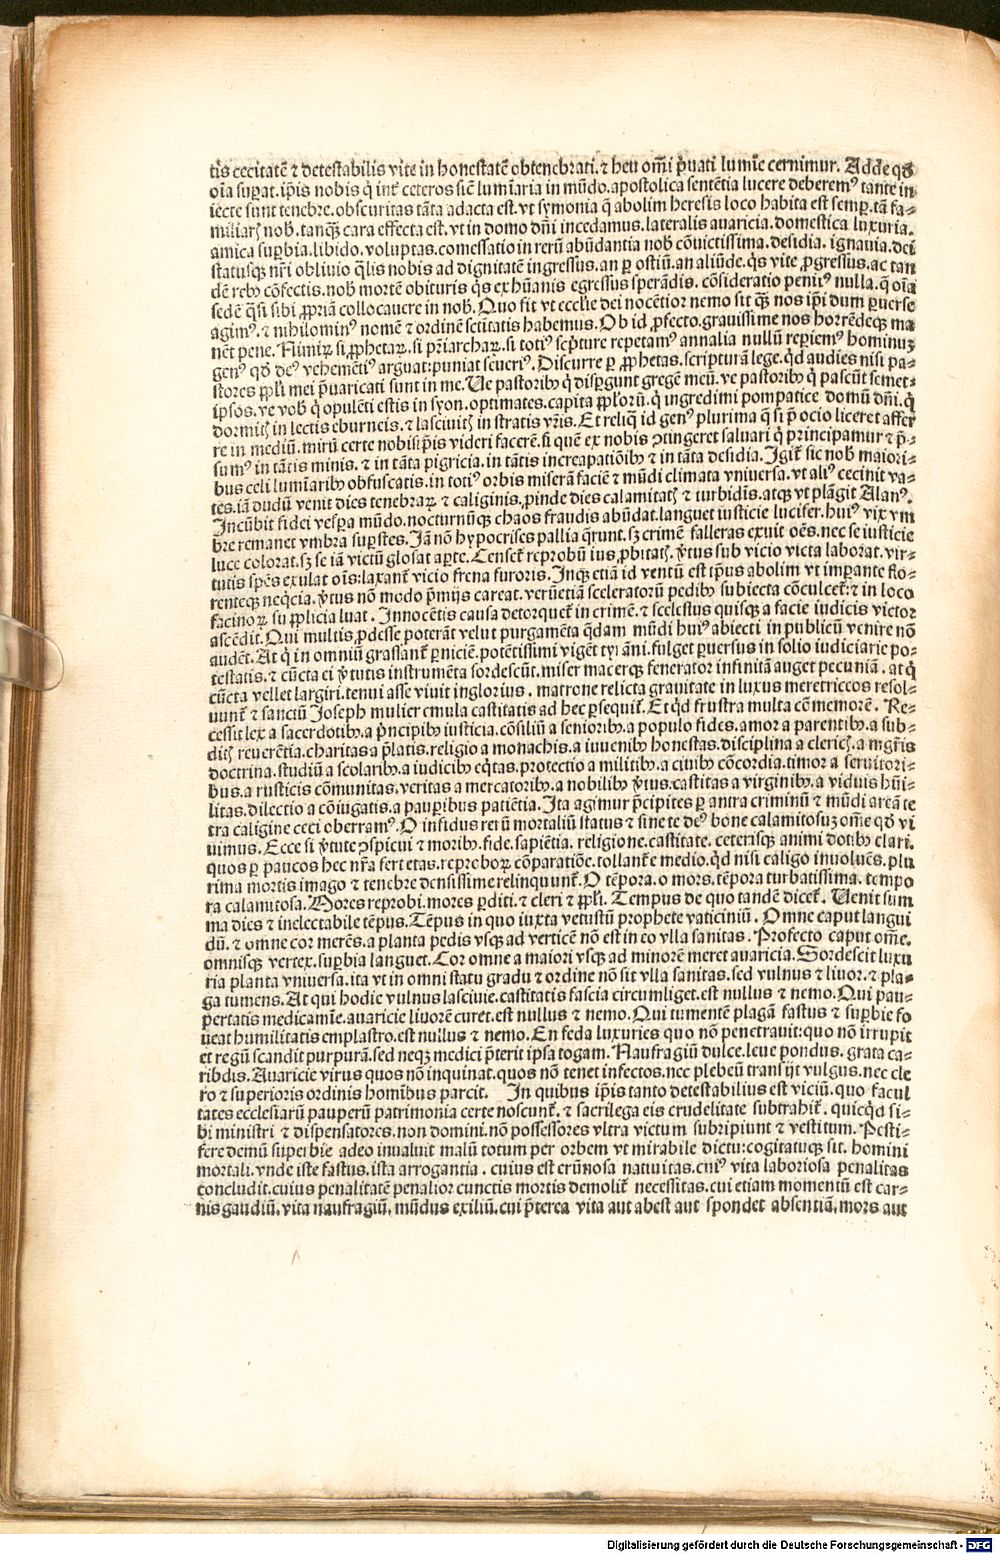 tis cecitatē ⁊ detestabilis vite in honestatē obtenebrati. ⁊ heu om̄i p̄uati lumīe cernimur. Adde qđ
oīa suꝑat. ip̄is nobis q̇ int̄ ceteros sic̄ lumīaria in mūdo. apostolica sentētia lucere deberemꝰ tante in
iecte sunt tenebre. obscuritas tāta adacta est. vt symonia q̄ abolim heresis loco habita est semꝑ. tā fa⸗
miliarꝭ nob̄. tanqꝫ cara effecta est. vt in domo dn̄i incedamus. lateralis auaricia. domestica luxuria.
amica suꝑbia. libido. voluptas. comessatio in rerū abūdantia nob̄ cōuictissima. desidia. ignauia. dei
statusqꝫ nr̄i obliuio q̄lis nobis ad dignitatē ingressus. an ꝑ ostiū. an aliūde. q̄s vite ꝓgressus. ac tan
dē rebꝫ cōfectis. nob̄ mortē obituris q̄s ex hūanis egressus sperādis. cōsideratio penitꝰ nulla. q̄ oīa
sedē q̄si sibi ꝓpriā collocauere in nob̄. Quo fit vt ecclīe dei nocētior nemo sit qꝫ̄ nos ip̄i dum ꝑuerse
agimꝰ. ⁊ nihilominꝰ nomē ⁊ ordinē sc̄titatis habemus. Ob id ꝓfecto. grauissime nos horrēdeqꝫ ma
nēt pene. Nimiꝝ si ꝓphetaꝝ. si pr̄iarchaꝝ. si totiꝰ scp̄ture repetamꝰ annalia nullū reꝑiemꝰ hominuꝫ
genꝰ qđ deꝰ vehemētiꝰ arguat: puniat seueriꝰ. Discurre ꝑ ꝓphetas. scripturā lege. qd̄ audies nisi pa⸗
stores ꝓpl̄i mei p̄uaricati sunt in me. Ue pastoribꝫ q̇ disꝑgunt gregē meū. ve pastoribꝫ q̇ pascūt semet⸗
ipsos. ve vob̄ q̇ opulēti estis in syon. optimates. capita ꝓploꝝ. q̇ ingredimi pompatice domū dn̄i. q̇
dormitꝭ in lectis eburneis. ⁊ lasciuitꝭ in stratis vr̄is. Et reliq̄ id genꝰ plurima q̄ si p̄ ocio liceret affer
re in mediū. mirū certe nobisip̄is videri facerē. si quē ex nobis ꝯtingeret saluari q̇ principamur ⁊ p̄⸗
sumꝰ in tātis minis. ⁊ in tāta pigricia. in tātis increapatiōibꝫ ⁊ in tāta desidia. Igit̄ sic nob̄ maiori⸗
bus celi lumīaribꝫ obfuscatis. in totiꝰ orbis miserā faciē ⁊ mūdi climata vniuersa. vt aliꝰ cecinit va⸗
tes. iā dudū venit dies tenebraꝝ ⁊ caliginis. ꝓinde dies calamitatꝭ ⁊ turbidīs. atqꝫ vt plāgit Alanꝰ.
Incūbit fidei vesꝑa mūdo. nocturnūqꝫ chaos fraudis abūdat. languet iusticie lucifer. huiꝰ vix vm
bre remanet vmbra suꝑstes. Iā nō hypocrises pallia q̄runt. sꝫ crimē falleras exuit oēs. nec se iusticie
luce colorat. sꝫ se iā viciū glosat aꝑte. Censet̄ reprobū ius, ꝓbitatꝭ. v̄tus sub vicio victa laborat. vir⸗
tutis spēs exulat oīs: laxant̄ vicio frena furoris. Inqꝫ etiā id ventū est tp̄us abolim vt imꝑante flo⸗
renteqꝫ neq̄cia. v̄tus nō modo p̄mijs careat. verūetiā sceleratorū pedibꝫ subiecta cōculcet̄: ⁊ in loco
facinoꝝ su ꝓplicia luat. Innocētis causa detorquet̄ in crimē. ⁊ scelestus quisqꝫ a facie iudicis victor
ascēdit. Qui multis ꝓdesse poterāt velut purgamēta q̄dam mūdi huiꝰ abiecti in publicū venire nō
audēt. At q̇ in omniū grassant̄ ꝑniciē. potētissimi vigēt tyrāni. fulget ꝑuersus in solio iudiciarie po⸗
testatis. ⁊ cūcta ei v̄tutis instrumēta sordescūt. miser macerqꝫ fenerator infinitā auget pecuniā. at q̇
cūcta vellet largiri. tenui asse viuit inglorius. matrone relicta grauitate in luxus meretriceos resol⸗
uunt̄ ⁊ sanctū Joseph mulier emula castitatis ad hec ꝑsequit̄. Et qd̄ frustra multa cōmemorē. Re⸗
cessit lex a sacerdotibꝫ. a p̄ncipibꝫ iusticia. cōsiliū a senioribꝫ. a populo fides. amor a parentibꝫ. a sub⸗
ditꝭ reuerētia. charitas a p̄latis. religio a monachis. a iuuenibꝫ honestas. disciplina a clericꝭ. a mgr̄is
doctrina. studiū a scolaribꝫ. a iudicibꝫ eq̄tas. protectio a militibꝫ. a ciuibꝫ cōcordia. timor a seruitori⸗
bus. a rusticis cōmunitas. veritas a mercatoribꝫ. a nobilibꝫ v̄tus. castitas a virginibꝫ. a viduis hūi⸗
litas. dilectio a cōiugatis. a pauꝑibus patiētia. Ita agimur p̄cipites ꝑ antra criminū ⁊ mūdi areā te
tra caligine ceci oberramꝰ. O infidus rerū mortaliū status ⁊ sine te deꝰ bone calamitosuꝫ om̄e qđ vi
uimus. Ecce si v̄tute ꝯspicui ⁊ moribꝫ. fide. sapiētia. religione. castitate. ceterisqꝫ animi dotibꝫ clari.
quos ꝑ paucos hec nr̄a fert etas. reproboꝝ cōparatiōe. tollant̄ e medio. qd̄ nisi caligo inuoluēs. plu
rima mortis imago ⁊ tenebre densissime relinquunt̄. O tēpora. o mors. tēpora turbatissima. tempo
ra calamitosa. Mores reprobi. mores ꝑditi. ⁊ cleri ⁊ ꝓpl̄i. Tempus de quo tandē dicet̄. Uenit sum
ma dies ⁊ inelectabile tēpus. Tēpus in quo iuxta vetustū prophete vaticiniū. Omne caput langui
dū. ⁊ omne cor merēs. a planta pedis vsqꝫ ad verticē nō est in eo vlla sanitas. Profecto caput om̄e.
omnisqꝫ vertex. suꝑbia languet. Cor omne a maiori vsqꝫ ad minorē meret auaricia. Sordescit luxu
ria planta vniuersa. ita vt in omni statu gradu ⁊ ordine nō sit vlla sanitas. sed vulnus ⁊ liuor. ⁊ pla⸗
ga tumens. At qui hodie vulnus lasciuie. castitatis fascia circumliget. est nullus ⁊ nemo. Qui pau⸗
ꝑtatis medicamīe. auaricie liuorē curet. est nullus ⁊ nemo. Qui tumentē plagā fastus ⁊ suꝑbie fo
ueat humilitatis emplastro. est nullus ⁊ nemo. En feda luxuries quo nō penetrauit: quo nō irrupit
et regū scandit purpurā. sed neqꝫ medici p̄terit ipsa togam. Naufragiū dulce. leue pondus. grata ca⸗
ribdis. Auaricie virus quos nō inquinat. quos nō tenet infectos. nec plebeū transijt vulgus. nec cle
ro ⁊ superioris ordinis homībus parcit. In quibus ip̄is tanto detestabilius est viciū. quo facul
tates ecclesiarū pauperū patrimonia certe noscunt̄. ⁊ sacrilega eis crudelitate subtrahit̄. quicqd̄ si⸗
bi ministri ⁊ dispensatores. non domini. nō possessores vltra victum subripiunt ⁊ vestitum. Pesti⸗
fere demū superbie adeo inualuit malū totum per orbem vt mirabile dictu: cogitatuqꝫ sit. homini
mortali. vnde iste fastus. ista arrogantia. cuius est erūnosa natiuitas. cuiꝰ vita laboriosa penalitas
concludit. cuius penalitatē penalior cunctis mortis demolit̄ necessītas. cui etiam momentū est car⸗
nis gaudiū. vita naufragiū. mūdus exiliū. cui p̄terea vita aut abest aut spondet absentiā. mors aut
Digitalisierung gefördert durch die Deutsche Forschungsgemeinschaft - DFG